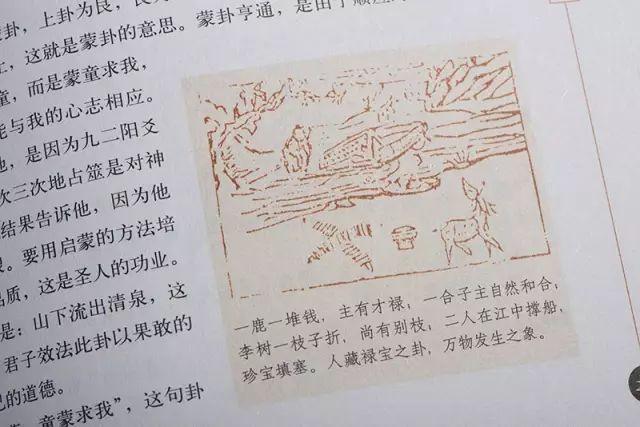 蒙卦，上卦为艮，
，这就是蒙卦的意思。蒙卦亨通，是由于
童，而是蒙童求我，
能与我的心志相应。
他，是因为九二阳爻
次三次地占筮是对神
结果告诉他，因为他
。要用启蒙的方法培
品质，这是圣人的功业。
是：山下流出清泉，这
君子效法此卦以果敢的
己的道德。
童蒙求我”，这句卦
一鹿一堆钱，主有才禄；一合子主自然和合；
李树一枝子折，尚有别枝；二人在江中撑船，
珍宝填塞。人藏禄宝之卦，万物发生之象。